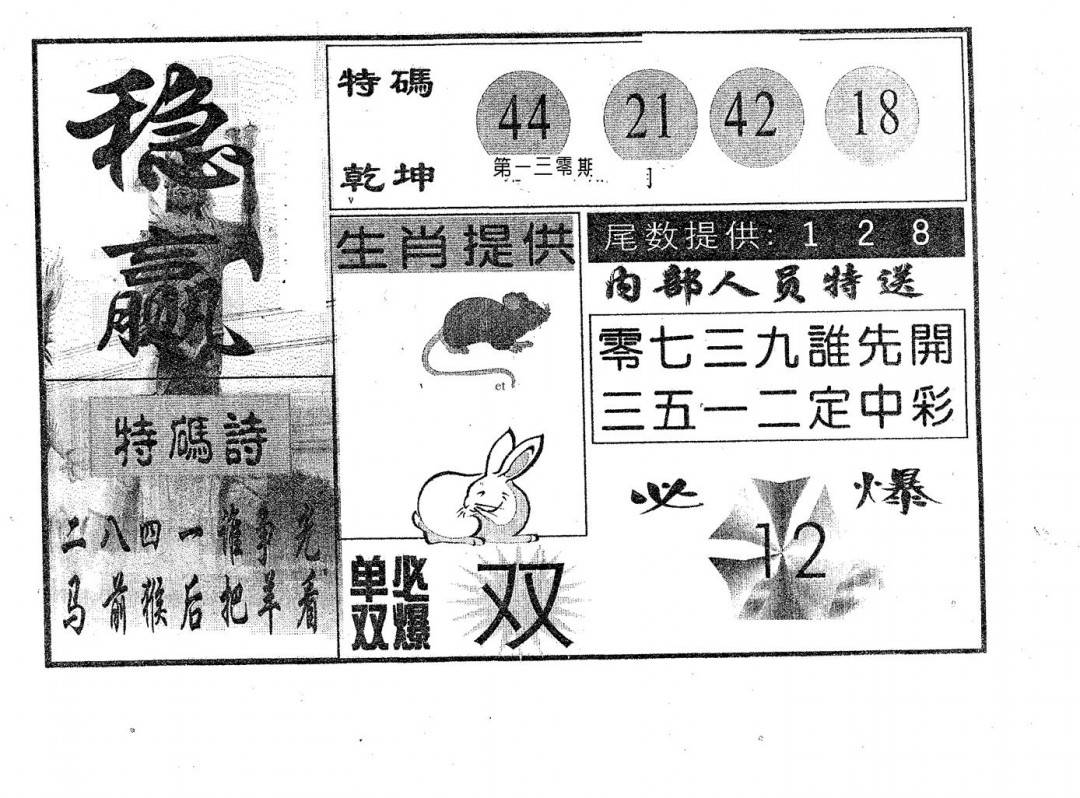 稳赢
特碼
乾坤
44 21 42 18
第一三零期
生肖提供
et
尾数提供: 1 2 8
内部人员特送
零七三九誰先開
三五一二定中彩
特碼詩
二八四一谁争先
马前猴后把羊看
必爆
12
单双必爆
双